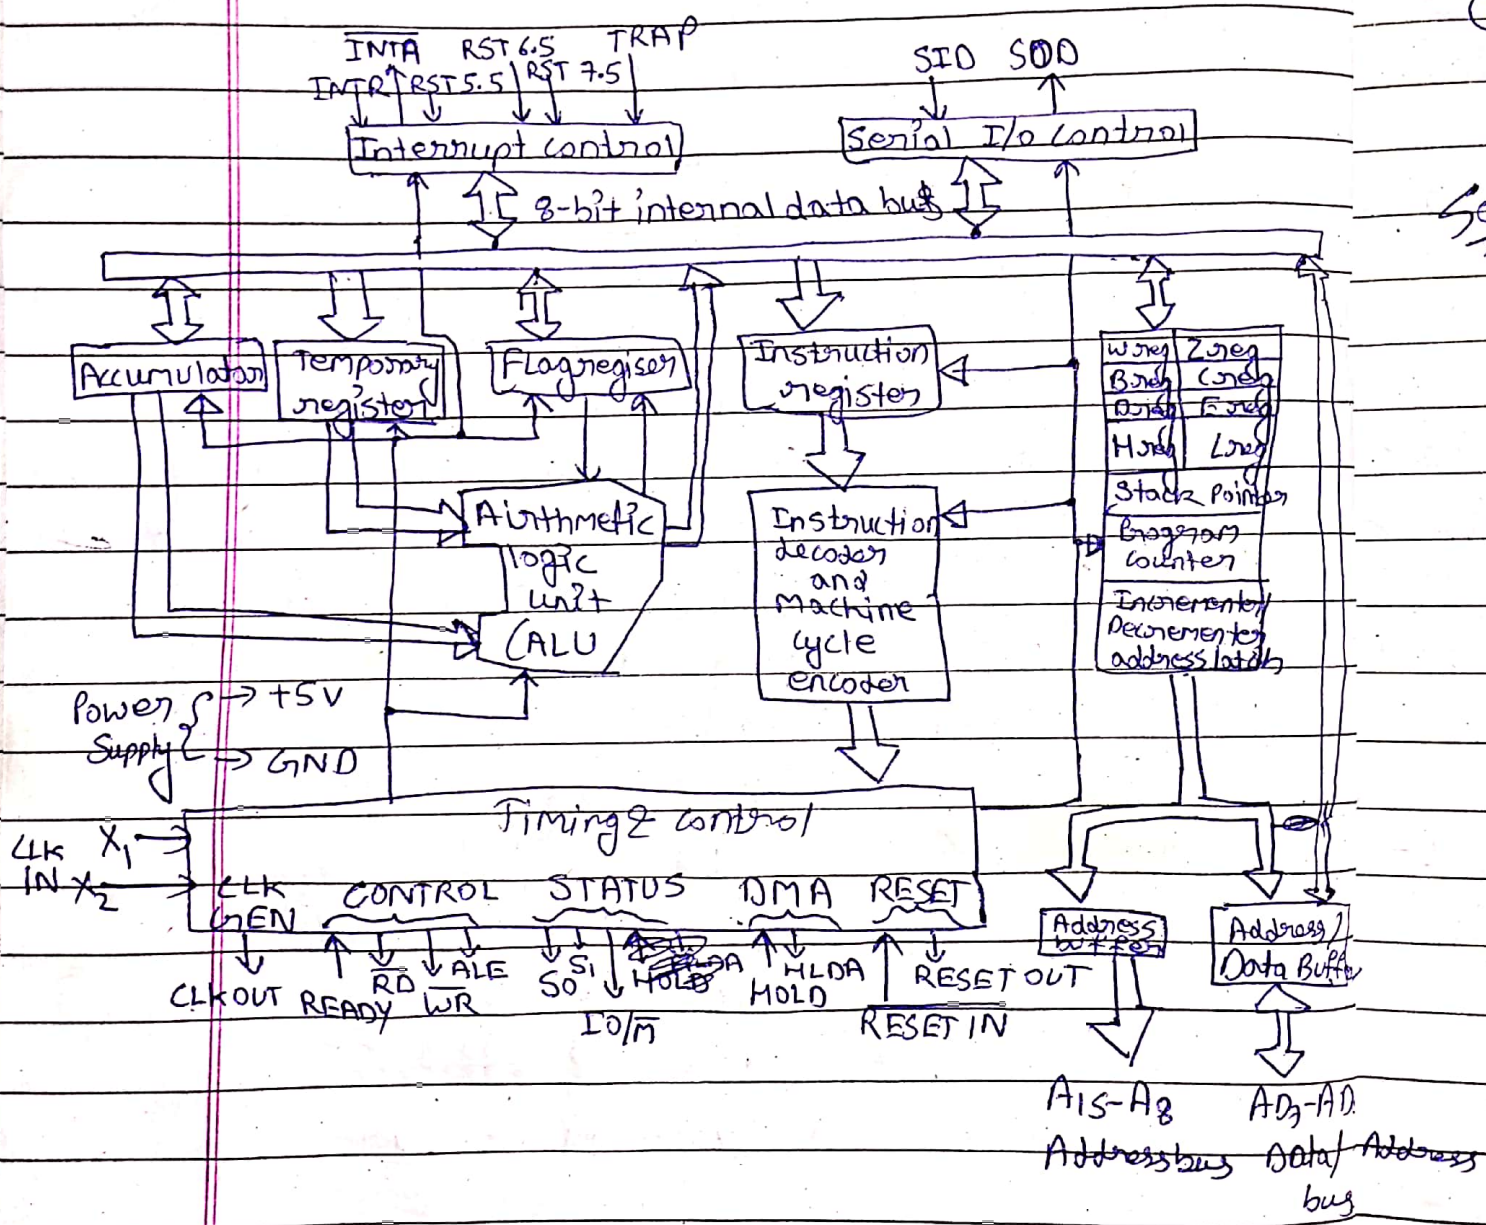 INTA RST 6.5 TRAP
INTR RST 5.5 RST 7.5
SID SOD
Interrupt control
Serial I/o control
8-bit internal data bus
Accumulator
Temporary
register
Flagregiser
Instruction
register
Wreg Zreg
Breg Creg
Dreg Ereg
Hreg Lreg
Stack Pointer
Program
counter
Incrementer/
Decrementer
address latch
Airthmetic
logic
unit
(ALU
Instruction
decoder
and
Machine
cycle
encoder
Power
Supply
+5V
GND
Timing & control
CLK
IN
X1
X2
CLK
GEN
CONTROL STATUS DMA RESET
CLK OUT
READY
RD
WR
ALE
S0
S1
IO/M
HOLD
HLDA
RESET OUT
RESET IN
Address
buffer
Address/
Data Buffer
A15-A8
Addressbus
AD7-AD
Data/ Address
bus